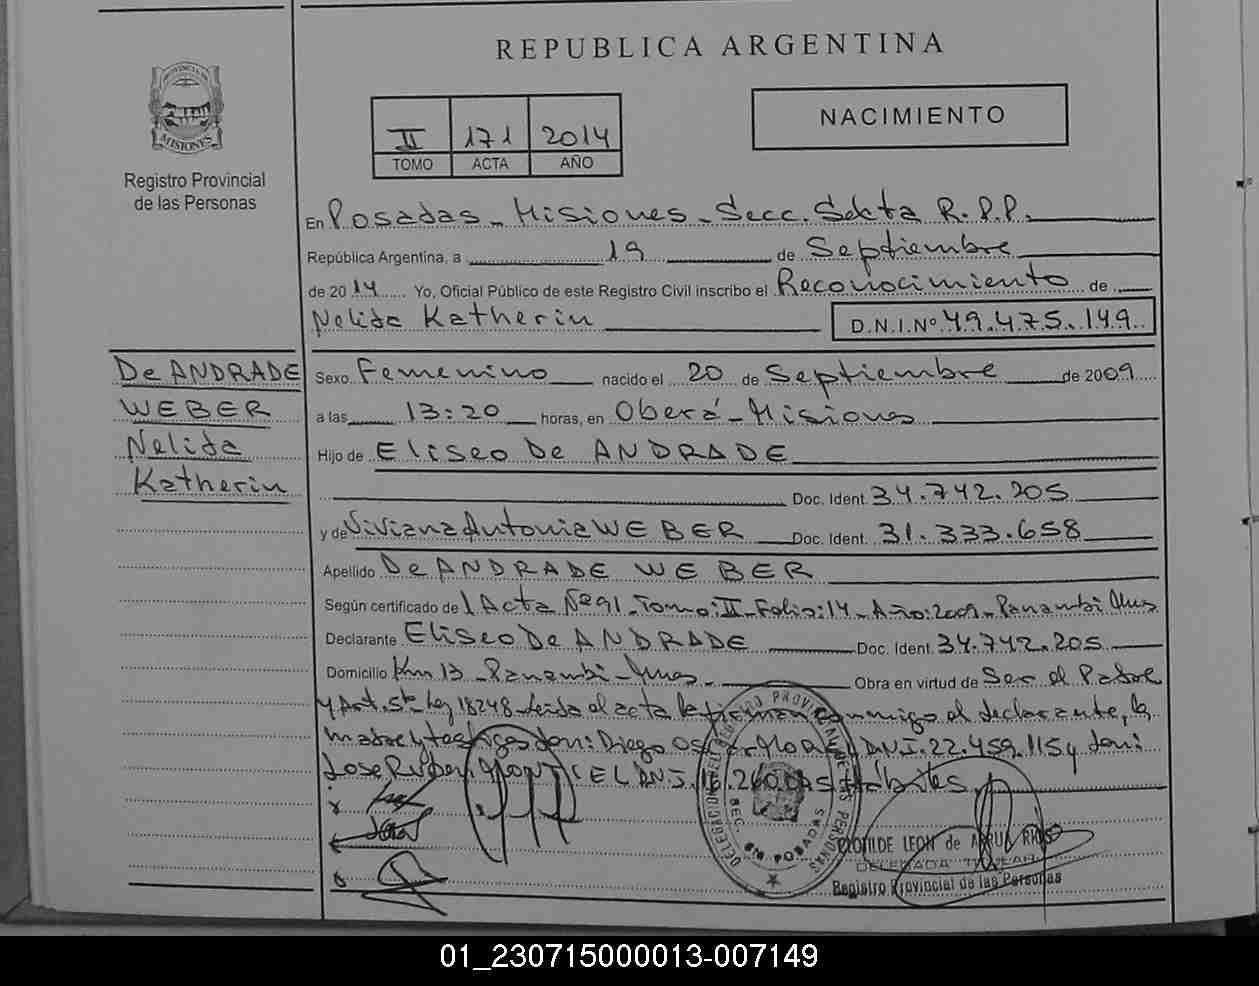 REPUBLICA ARGENTINA
PROVINCIA DE
MISIONES
Registro Provincial
de las Personas
II 171 2014
TOMO ACTA AÑO
NACIMIENTO
En Posadas - Misiones - Secc. Sexta R.P.P.
República Argentina, a 19 de Septiembre
de 2014 Yo, Oficial Público de este Registro Civil inscribo el Reconocimiento de
Nelida Katherin D.N.I.Nº 49.475.149
De ANDRADE
WEBER
Nelida
Katherin
Sexo Femenino nacido el 20 de Septiembre de 2009
a las 13:20 horas, en Oberá - Misiones
Hijo de Eliseo De ANDRADE
Doc. Ident. 34.742.205
y de Viviana Antonia WEBER Doc. Ident. 31.333.658
Apellido De ANDRADE WEBER
Según certificado de l Acta Nº 91 - Tomo: II - Folio: 14 - Año: 2009 - Panambi Mnes
Declarante Eliseo De ANDRADE Doc. Ident. 34.742.205
Domicilio Km 13 - Panambi - Mnes. Obra en virtud de Ser el Padre
y Art. 5to Ley 18248 - Leida el acta la firman conmigo el declarante, la
madre y testigos don: Diego D.N.I. 22.459.115 y don:
Jose Ruben MONTIEL DNI. Hábiles.
DELEGACION DEL REGISTRO PROVINCIAL DE LAS PERSONAS
SEC. 6ta POSADAS
CLOTILDE LEON de
DELEGADA TITULAR
Registro Provincial de las Personas
01_230715000013-007149